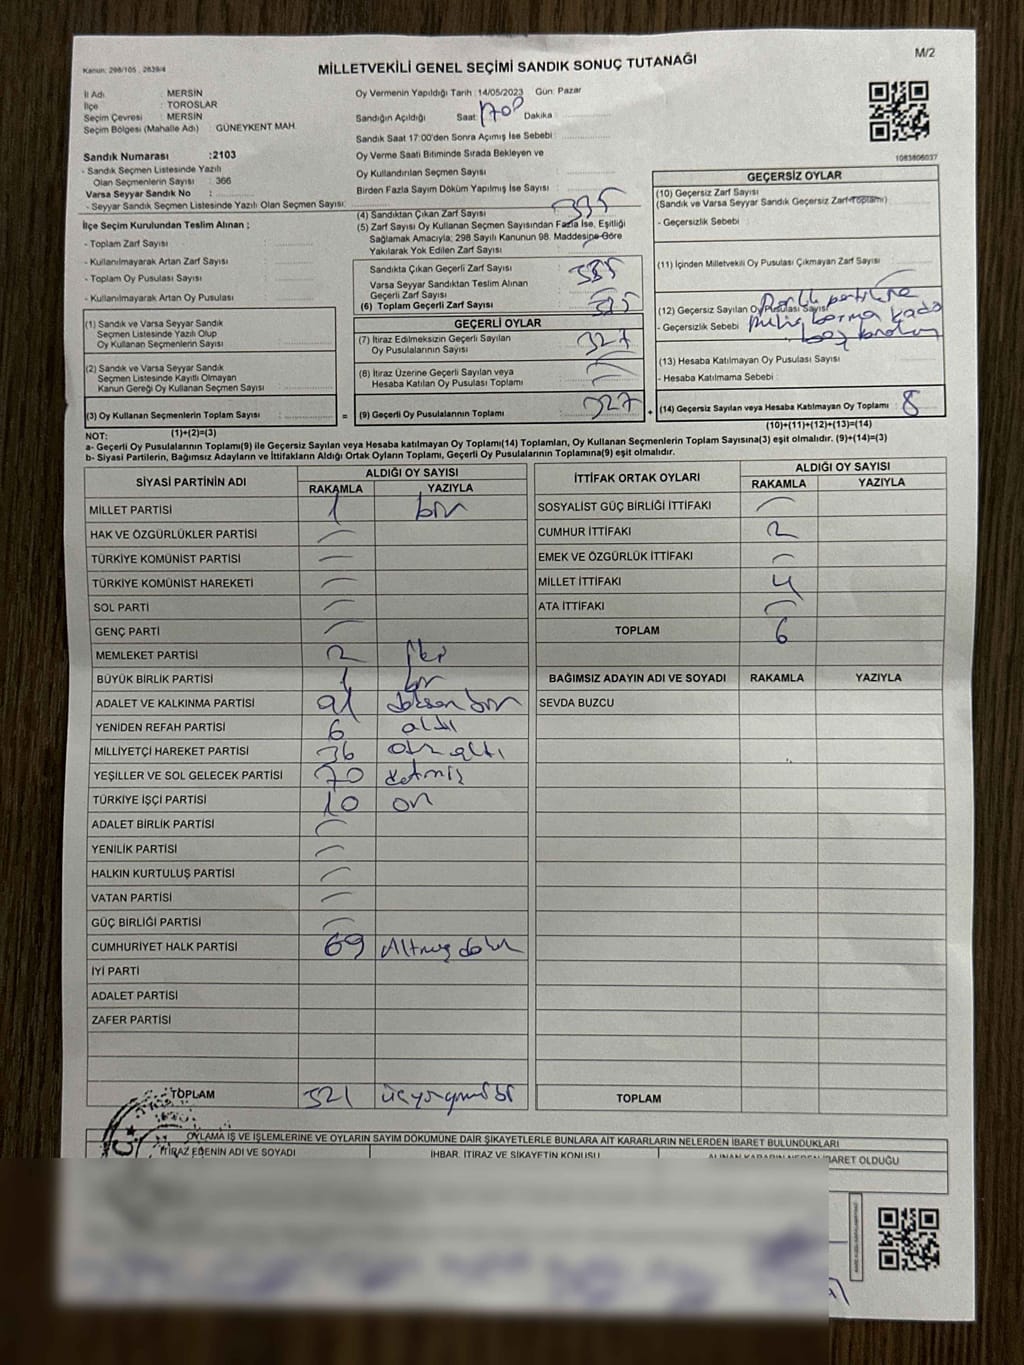 M/2
Kanun: 298/105 , 2839/4
MİLLETVEKİLİ GENEL SEÇİMİ SANDIK SONUÇ TUTANAĞI
İl Adı : MERSİN
İlçe : TOROSLAR
Seçim Çevresi : MERSİN
Seçim Bölgesi (Mahalle Adı) : GÜNEYKENT MAH.
Sandık Numarası :2103
- Sandık Seçmen Listesinde Yazılı
Olan Seçmenlerin Sayısı : 366
Varsa Seyyar Sandık No :
- Seyyar Sandık Seçmen Listesinde Yazılı Olan Seçmen Sayısı:
Oy Vermenin Yapıldığı Tarih : 14/05/2023 Gün: Pazar
Sandığın Açıldığı Saat: 1700 Dakika :
Sandık Saat 17:00'den Sonra Açımış İse Sebebi :
Oy Verme Saati Bitiminde Sırada Bekleyen ve
Oy Kullandırılan Seçmen Sayısı :
Birden Fazla Sayım Döküm Yapılmış İse Sayısı :
1083806037
İlçe Seçim Kurulundan Teslim Alınan ;
- Toplam Zarf Sayısı :
- Kullanılmayarak Artan Zarf Sayısı :
- Toplam Oy Pusulası Sayısı :
- Kullanılmayarak Artan Oy Pusulası :
(1) Sandık ve Varsa Seyyar Sandık
Seçmen Listesinde Yazılı Olup
Oy Kullanan Seçmenlerin Sayısı :
(2) Sandık ve Varsa Seyyar Sandık
Seçmen Listesinde Kayıtlı Olmayan
Kanun Gereği Oy Kullanan Seçmen Sayısı :
(3) Oy Kullanan Seçmenlerin Toplam Sayısı :
(1)+(2)=(3)
(4) Sandıktan Çıkan Zarf Sayısı : 335
(5) Zarf Sayısı Oy Kullanan Seçmen Sayısından Fazla İse, Eşitliği
Sağlamak Amacıyla; 298 Sayılı Kanunun 98. Maddesine Göre
Yakılarak Yok Edilen Zarf Sayısı :
Sandıkta Çıkan Geçerli Zarf Sayısı : 335
Varsa Seyyar Sandıktan Teslim Alınan
Geçerli Zarf Sayısı :
(6) Toplam Geçerli Zarf Sayısı : 335
GEÇERLİ OYLAR
(7) İtiraz Edilmeksizin Geçerli Sayılan
Oy Pusulalarının Sayısı : 327
(8) İtiraz Üzerine Geçerli Sayılan veya
Hesaba Katılan Oy Pusulası Toplamı :
= (9) Geçerli Oy Pusulalarının Toplamı : 327 +
GEÇERSİZ OYLAR
(10) Geçersiz Zarf Sayısı
(Sandık ve Varsa Seyyar Sandık Geçersiz Zarf Toplamı) :
- Geçersizlik Sebebi :
(11) İçinden Milletvekili Oy Pusulası Çıkmayan Zarf Sayısı :
(12) Geçersiz Sayılan Oy Pusulası Sayısı :
- Geçersizlik Sebebi :
(13) Hesaba Katılmayan Oy Pusulası Sayısı :
- Hesaba Katılmama Sebebi :
(14) Geçersiz Sayılan veya Hesaba Katılmayan Oy Toplamı : 8
(10)+(11)+(12)+(13)=(14)
NOT:
a- Geçerli Oy Pusulalarının Toplamı(9) ile Geçersiz Sayılan veya Hesaba katılmayan Oy Toplamı(14) Toplamları, Oy Kullanan Seçmenlerin Toplam Sayısına(3) eşit olmalıdır. (9)+(14)=(3)
b- Siyasi Partilerin, Bağımsız Adayların ve İttifakların Aldığı Ortak Oyların Toplamı, Geçerli Oy Pusulalarının Toplamına(9) eşit olmalıdır.
SİYASİ PARTİNİN ADI ALDIĞI OY SAYISI
RAKAMLA YAZIYLA
MİLLET PARTİSİ 1 bir
HAK VE ÖZGÜRLÜKLER PARTİSİ
TÜRKİYE KOMÜNİST PARTİSİ
TÜRKİYE KOMÜNİST HAREKETİ
SOL PARTİ
GENÇ PARTİ
MEMLEKET PARTİSİ 2 iki
BÜYÜK BİRLİK PARTİSİ 1 bir
ADALET VE KALKINMA PARTİSİ 91 doksan bir
YENİDEN REFAH PARTİSİ 6 altı
MİLLİYETÇİ HAREKET PARTİSİ 36 otuz altı
YEŞİLLER VE SOL GELECEK PARTİSİ 70 yetmiş
TÜRKİYE İŞÇİ PARTİSİ 10 on
ADALET BİRLİK PARTİSİ
YENİLİK PARTİSİ
HALKIN KURTULUŞ PARTİSİ
VATAN PARTİSİ
GÜÇ BİRLİĞİ PARTİSİ
CUMHURİYET HALK PARTİSİ 69 Altmış dokuz
İYİ PARTİ
ADALET PARTİSİ
ZAFER PARTİSİ
TOPLAM 321 üçyüzyirmi bir
İTTİFAK ORTAK OYLARI ALDIĞI OY SAYISI
RAKAMLA YAZIYLA
SOSYALİST GÜÇ BİRLİĞİ İTTİFAKI
CUMHUR İTTİFAKI 2
EMEK VE ÖZGÜRLÜK İTTİFAKI
MİLLET İTTİFAKI 4
ATA İTTİFAKI
TOPLAM 6
BAĞIMSIZ ADAYIN ADI VE SOYADI RAKAMLA YAZIYLA
SEVDA BUZCU
TOPLAM
OYLAMA İŞ VE İŞLEMLERİNE VE OYLARIN SAYIM DÖKÜMÜNE DAİR ŞİKAYETLERLE BUNLARA AİT KARARLARIN NELERDEN İBARET BULUNDUKLARI
İTİRAZ EDENİN ADI VE SOYADI İHBAR, İTİRAZ VE ŞİKAYETİN KONUSU ALINAN KARARIN NEDEN İBARET OLDUĞU